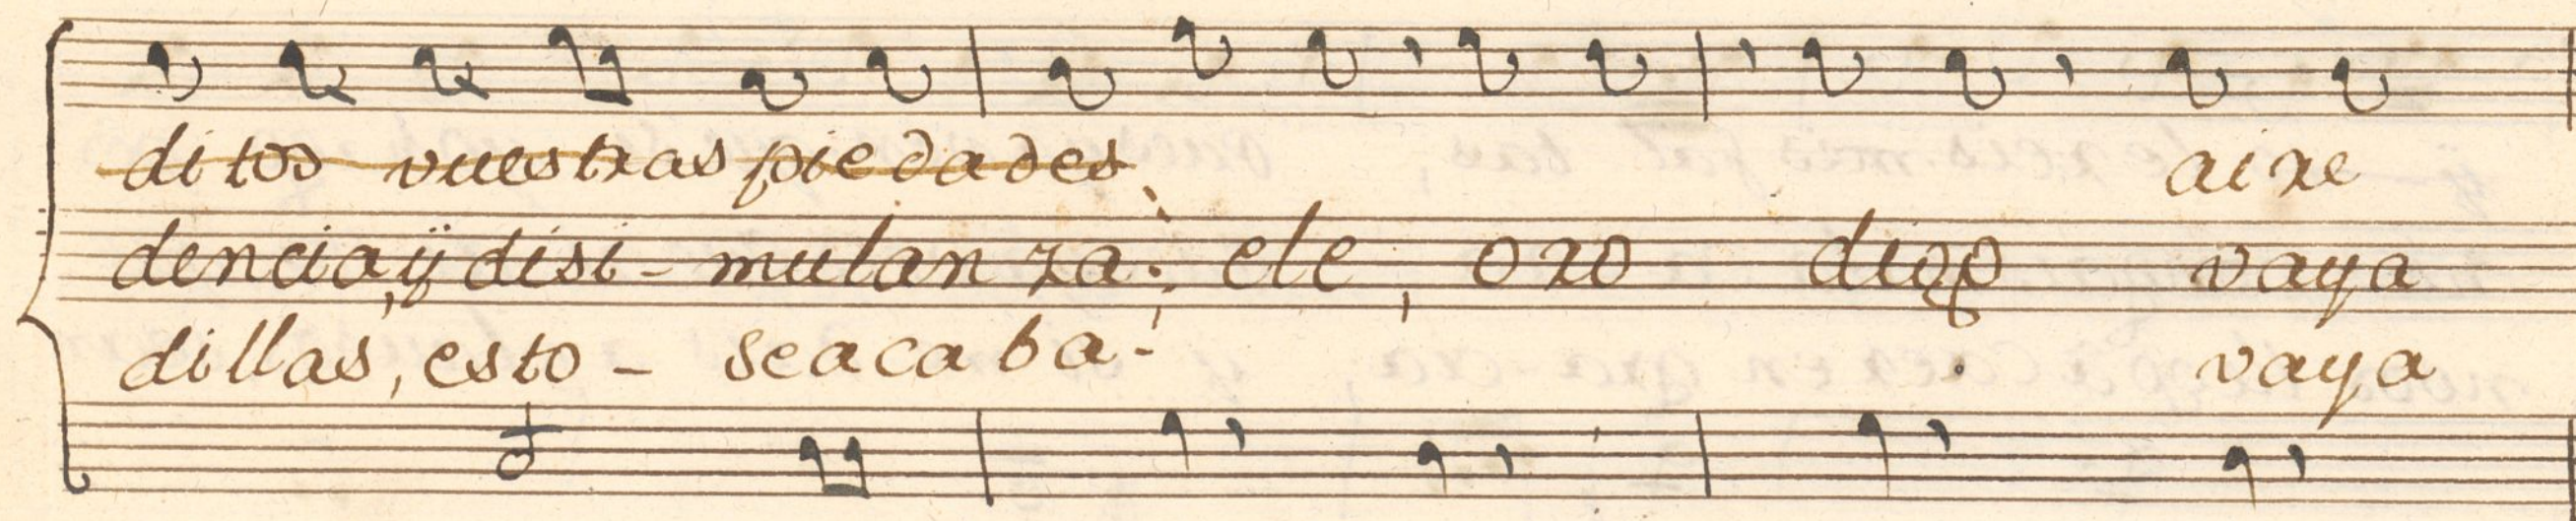 ditos vuestras piedades aire
dencia, ÿ disi- mulanza: ele, oro dios vaya
dillas, esto - se acaba. vaya